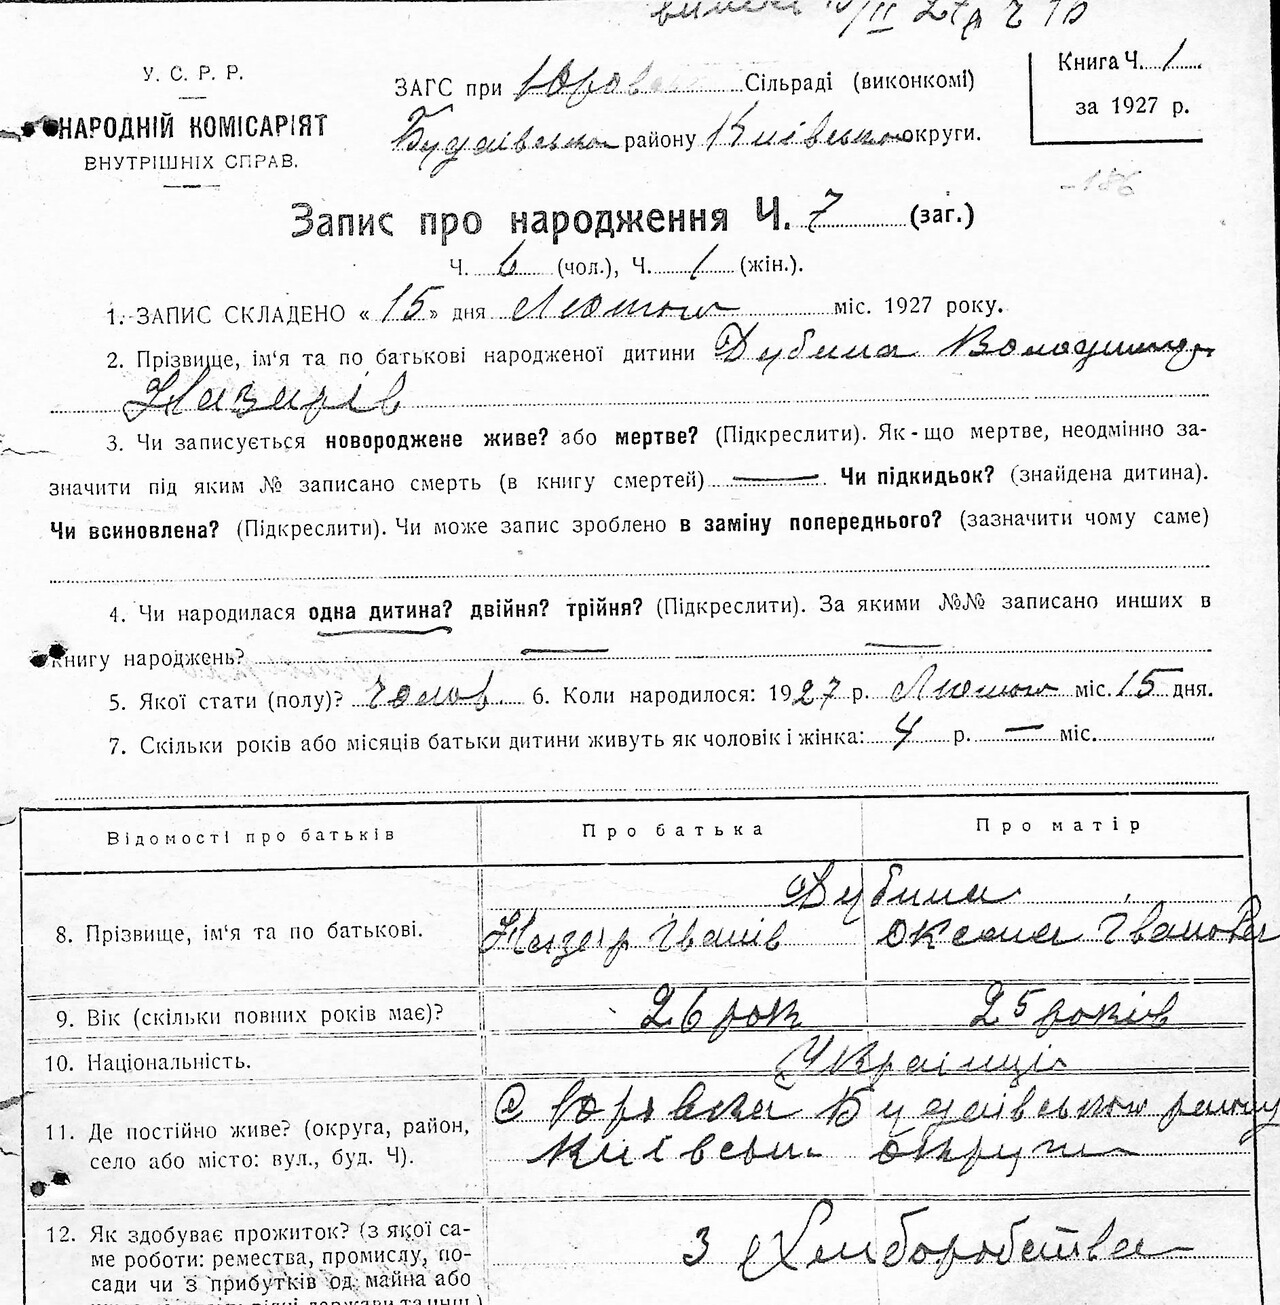 У. С. Р. Р.
НАРОДНІЙ КОМІСАРІЯТ
ВНУТРІШНІХ СПРАВ.
ЗАГС при Юров Сільраді (виконкомі)
Будаївського району Київської округи.
Книга Ч. 1
за 1927 р.
186
Запис про народження Ч. 7 (заг.)
Ч. 6 (чол.), Ч. 1 (жін.).
1. ЗАПИС СКЛАДЕНО « 15 » дня Лютого міс. 1927 року.
2. Прізвище, ім'я та по батькові народженої дитини Дубина Володимир
Назарів
3. Чи записується новороджене живе? або мертве? (Підкреслити). Як-що мертве, неодмінно за-
значити під яким № записано смерть (в книгу смертей) — Чи підкидьок? (знайдена дитина).
Чи всиновлена? (Підкреслити). Чи може запис зроблено в заміну попереднього? (зазначити чому саме)
4. Чи народилася одна дитина? двійня? трійня? (Підкреслити). За якими №№ записано инших в
книгу народжень? — —
5. Якої стати (полу)? чолов. 6. Коли народилося: 1927 р. Лютого міс. 15 дня.
7. Скільки років або місяців батьки дитини живуть як чоловік і жінка: 4 р. — міс.
Відомості про батьків Про батька Про матір
Дубина
8. Прізвище, ім'я та по батькові. Назар Іванів Оксана Іванова
9. Вік (скільки повних років має)? 26 рок 25 років
10. Національність. Українці
11. Де постійно живе? (округа, район, с Юрівка Будаївського району
село або місто: вул., буд. Ч). Київськ. округи
12. Як здобуває прожиток? (з якої са- З Хліборобства
ме роботи: ремества, промислу, по-
сади чи з прибутків од майна або